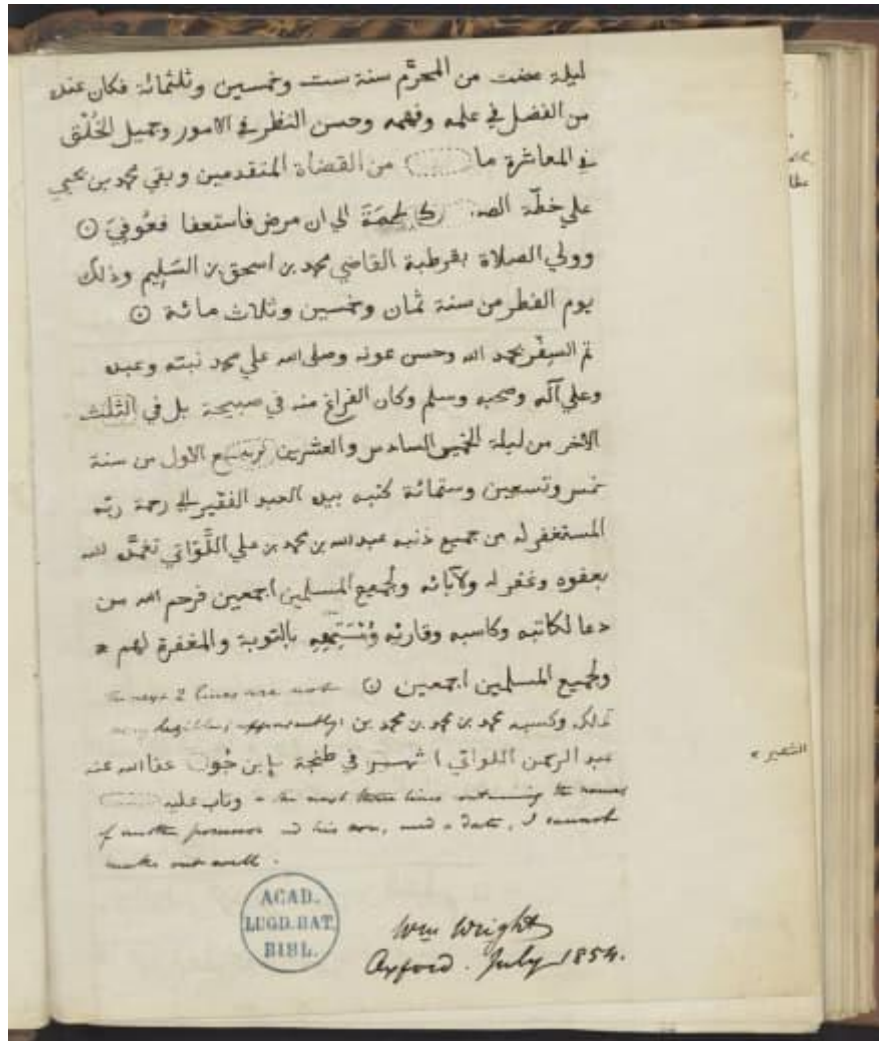 ليلة مضت من المحرَّم سنة ست وخمسين وثلثمائة فكان عنده
من الفضل في علمه وفهمه وحسن النظر في الامور وجميل الخُلْق
في المعاشرة ما من القضاة المتقدمين وبقي محمد بن يحيي
علي خطّة الصـ الي ان مرض فاستعفا فعُوفيَ
وولي الصلاة بقرطبة القاضي محمد بن اسحق بن السَلِيم وذلك
يوم الفطر من سنة ثمان وخمسين وثلاث مائة
تم السِفْر بحمد الله وحسن عونه وصلى الله علي محمد نبيّه وعبده
وعلي آله وصحبه وسلم وكان الفراغ منه في صبيحة بل في الثُلث
الآخر من ليلة الخميس السادس والعشرين لربيع الاول من سنة
خمس وتسعين وستمائة كتبه بيده العبد الفقير الي رحمة ربّه
المستغفر له من جميع ذنبه عبد الله بن محمد بن علي اللَّواتي تغمَّده الله
بعفوه وغفر له ولآبائه ولجميع المسلمين اجمعين فرحم الله من
دعا لكاتبه وكاسبه وقارئه ومُسْتَمِعِهِ بالتوبة والمغفرة لهم
ولجميع المسلمين اجمعين the next 2 lines are not
very legible; apparently: محمد بن محمد بن محمد بن
عبد الرحمن اللواتي شهر في طنجة بابن عفا الله عنه
الشهير
وتاب عليه the next three lines containing the names
of another possessor and his son, and a date, I cannot
make out well.
ACAD.
LUGD. BAT.
BIBL.
Wm Wright
Oxford. July 1854.